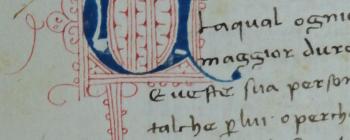 Laqual ognio
maggior dure
E queste sua person
talche p̲ lui· o perche